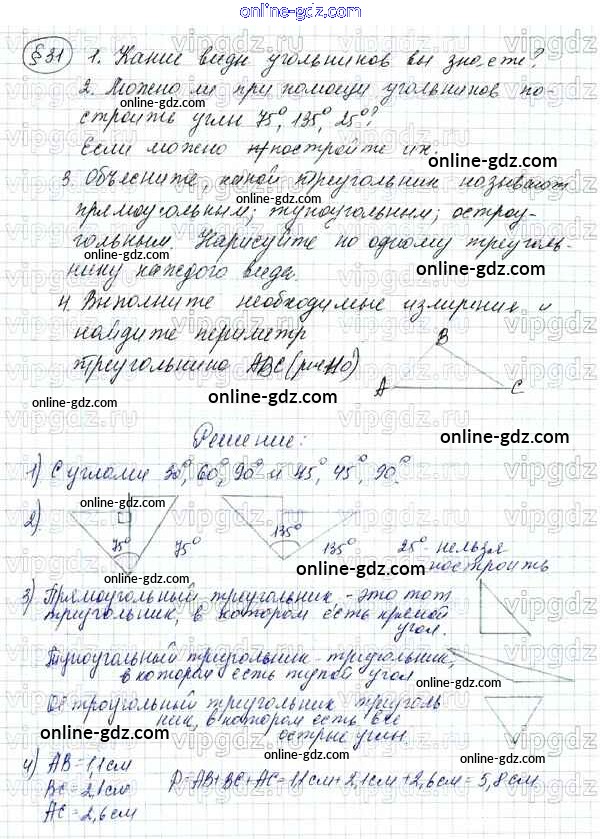 online-gdz.com
§31 1. Какие виды угольников вы знаете?
2. Можно ли при помощи угольников по-
online-gdz.com
строить углы 75°, 135°, 25°?
Если можно постройте их.
online-gdz.com
3. Объясните, какой треугольник называют
прямоугольным; тупоугольным; остроу-
online-gdz.com
гольным. Нарисуйте по одному треуголь-
нику каждого вида.
4. Выполните необходимые измерения и
найдите периметр
треугольника ABC (рис 110)
B
A
C
online-gdz.com
online-gdz.com
Решение:
1) С углами 30°, 60°, 90° и 45°, 45°, 90°.
online-gdz.com
online-gdz.com
2) 75° 75° 135° 135° 25° - нельзя
построить
online-gdz.com
3) Прямоугольный треугольник - это тот
треугольник, в котором есть прямой
угол.
online-gdz.com
Тупоугольный триугольник - триугольник,
в котором есть тупой угол
online-gdz.com
Остроугольный триугольник триуголь
ник, в котором есть все
острые углы.
online-gdz.com
online-gdz.com
4) AB = 1,1 см
BC = 2,1 см
AC = 2,6 см
P = AB + BC + AC = 1,1 см + 2,1 см + 2,6 см = 5,8 см
online-gdz.com
online-gdz.com